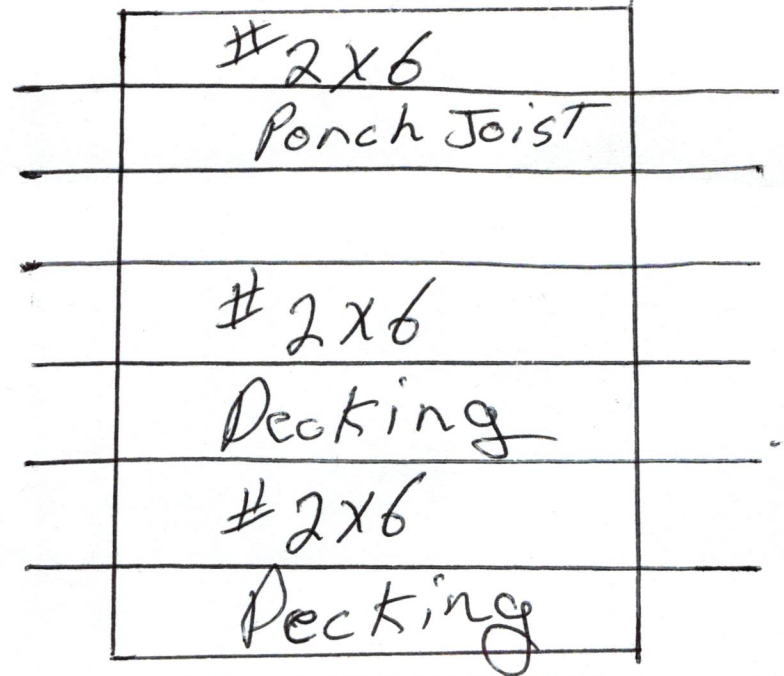 # 2x6
Porch Joist
# 2x6
Decking
# 2x6
Decking